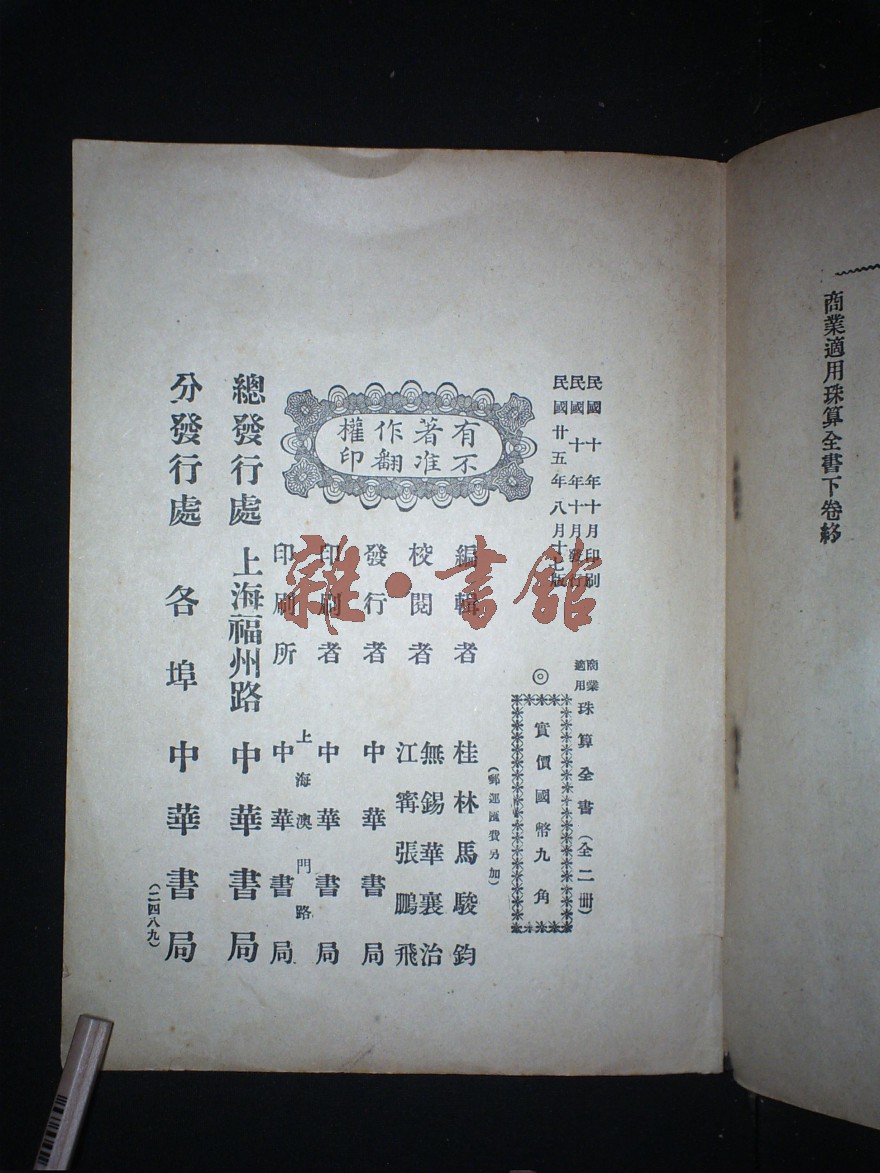 商業適用珠算全書下卷終
民國十年十月印刷
民國十年十月發行
民國廿五年八月十七版
商業適用珠算全書（全二冊）
◎實價國幣九角
（郵運匯費另加）
編輯者 桂林馬駿鈞
校閱者 無錫華襄治
江寗張鵬飛
發行者 中華書局
印刷者 中華書局
印刷所 上海澳門路
中華書局
有不
著准
作翻
權印
總發行處 上海福州路 中華書局
分發行處 各埠 中華書局
（二四八九）
雜·書館